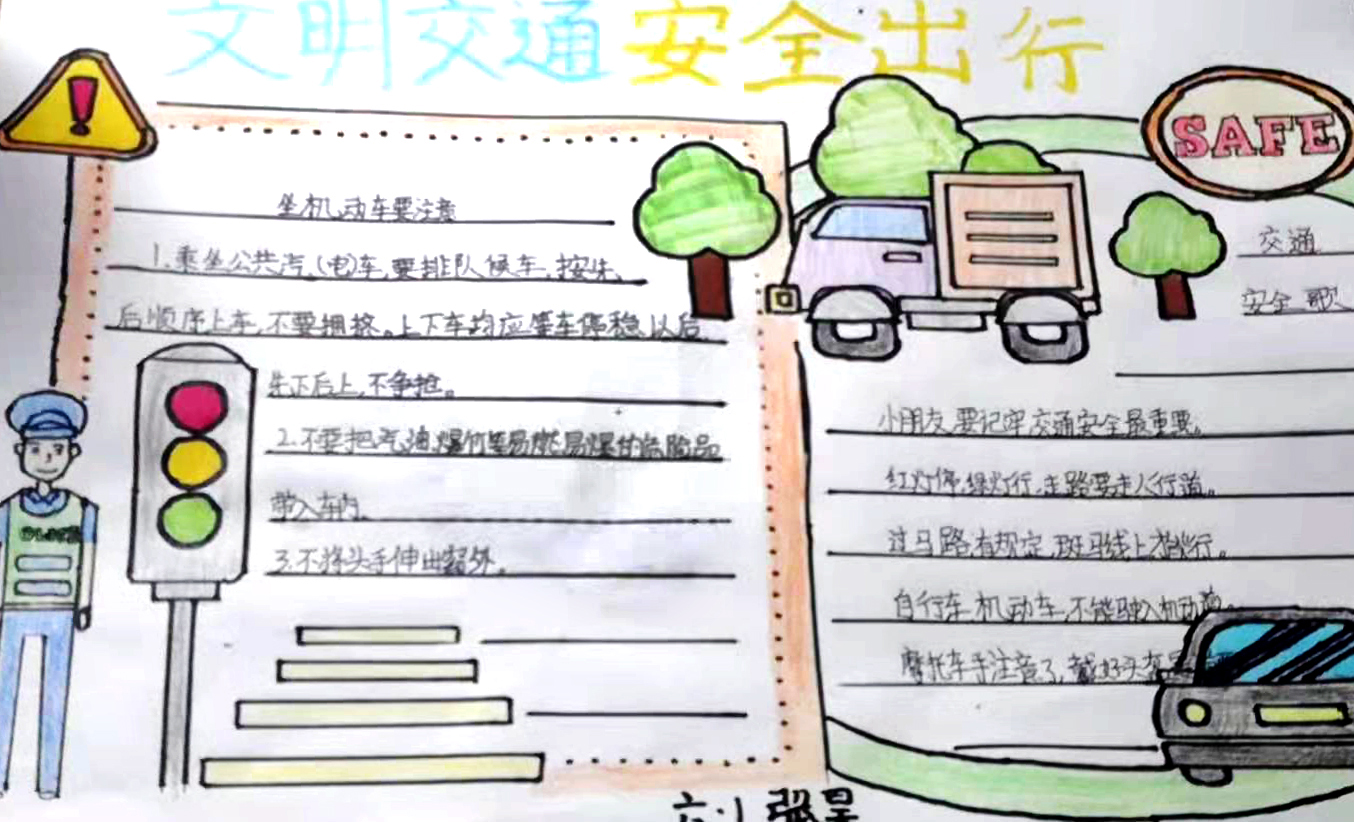 文明交通安全出行
SAFE
坐机动车要注意
1.乘坐公共汽(电)车,要排队候车,按先
后顺序上车,不要拥挤。上下车均应等车停稳以后
先下后上,不争抢。
2.不要把汽油、爆竹等易燃易爆的危险品
带入车内。
3.不将头手伸出窗外。
交通
安全歌
小朋友,要记牢,交通安全最重要。
红灯停,绿灯行,走路要走人行道。
过马路有规定,斑马线上才能行。
自行车,机动车,不能驶入机动
摩托车手注意了,戴好头
六.1 张昊